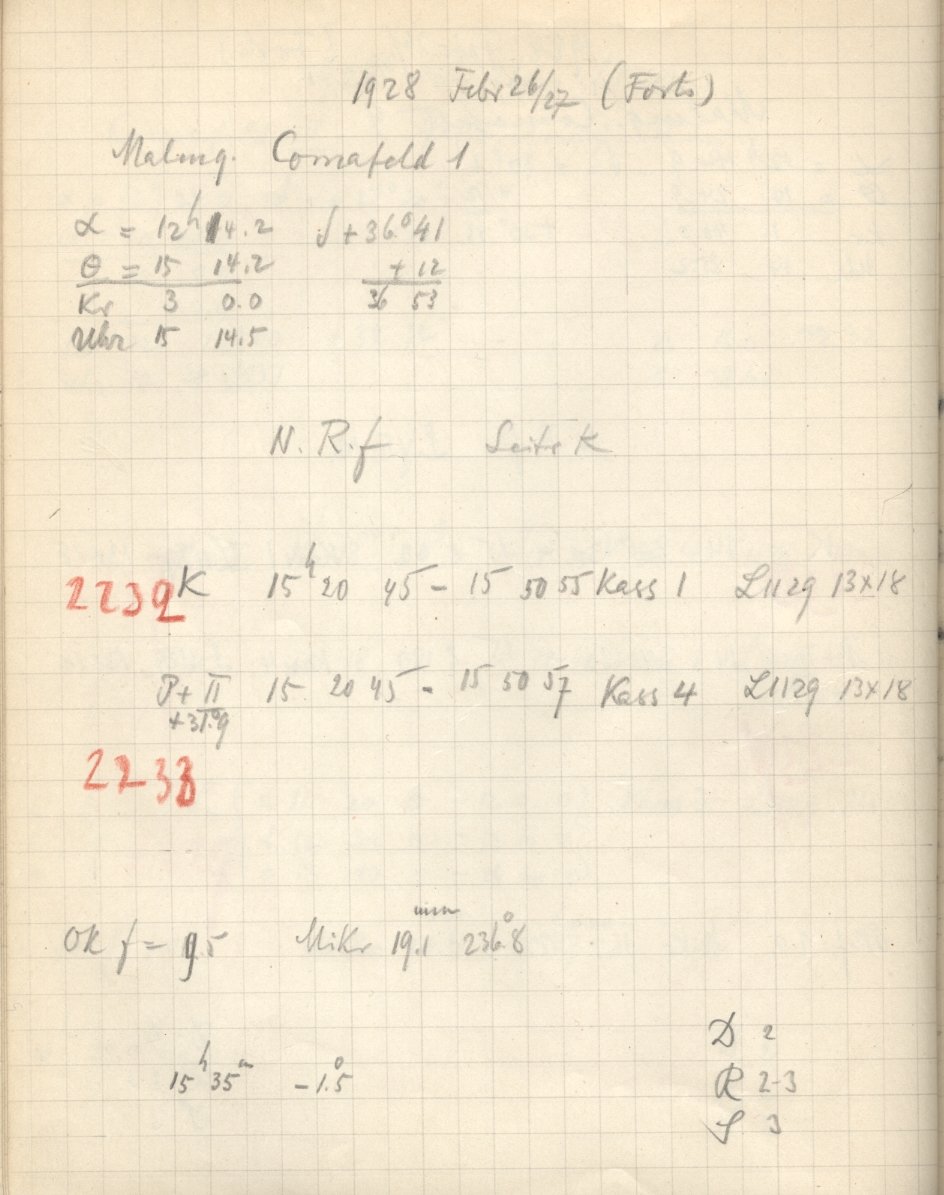 1928 Febr 26/27 (Forts)
Malmq. Comafeld 1
α = 12h 14.2 δ + 36.°41
θ = 15 14.2 + 12
Kr 3 0.0 36 53
Uhr 15 14.5
N. R. f Seite K
2232 K 15h 20 45 – 15 50 55 Kass 1 L1129 13×18
P + II 15 20 45 – 15 50 57 Kass 4 L1129 13×18
2233
OK f = 9.5 Mikr 19.1mm 236.°8
D 2
15h 35m –1.°5 R 2-3
S 3